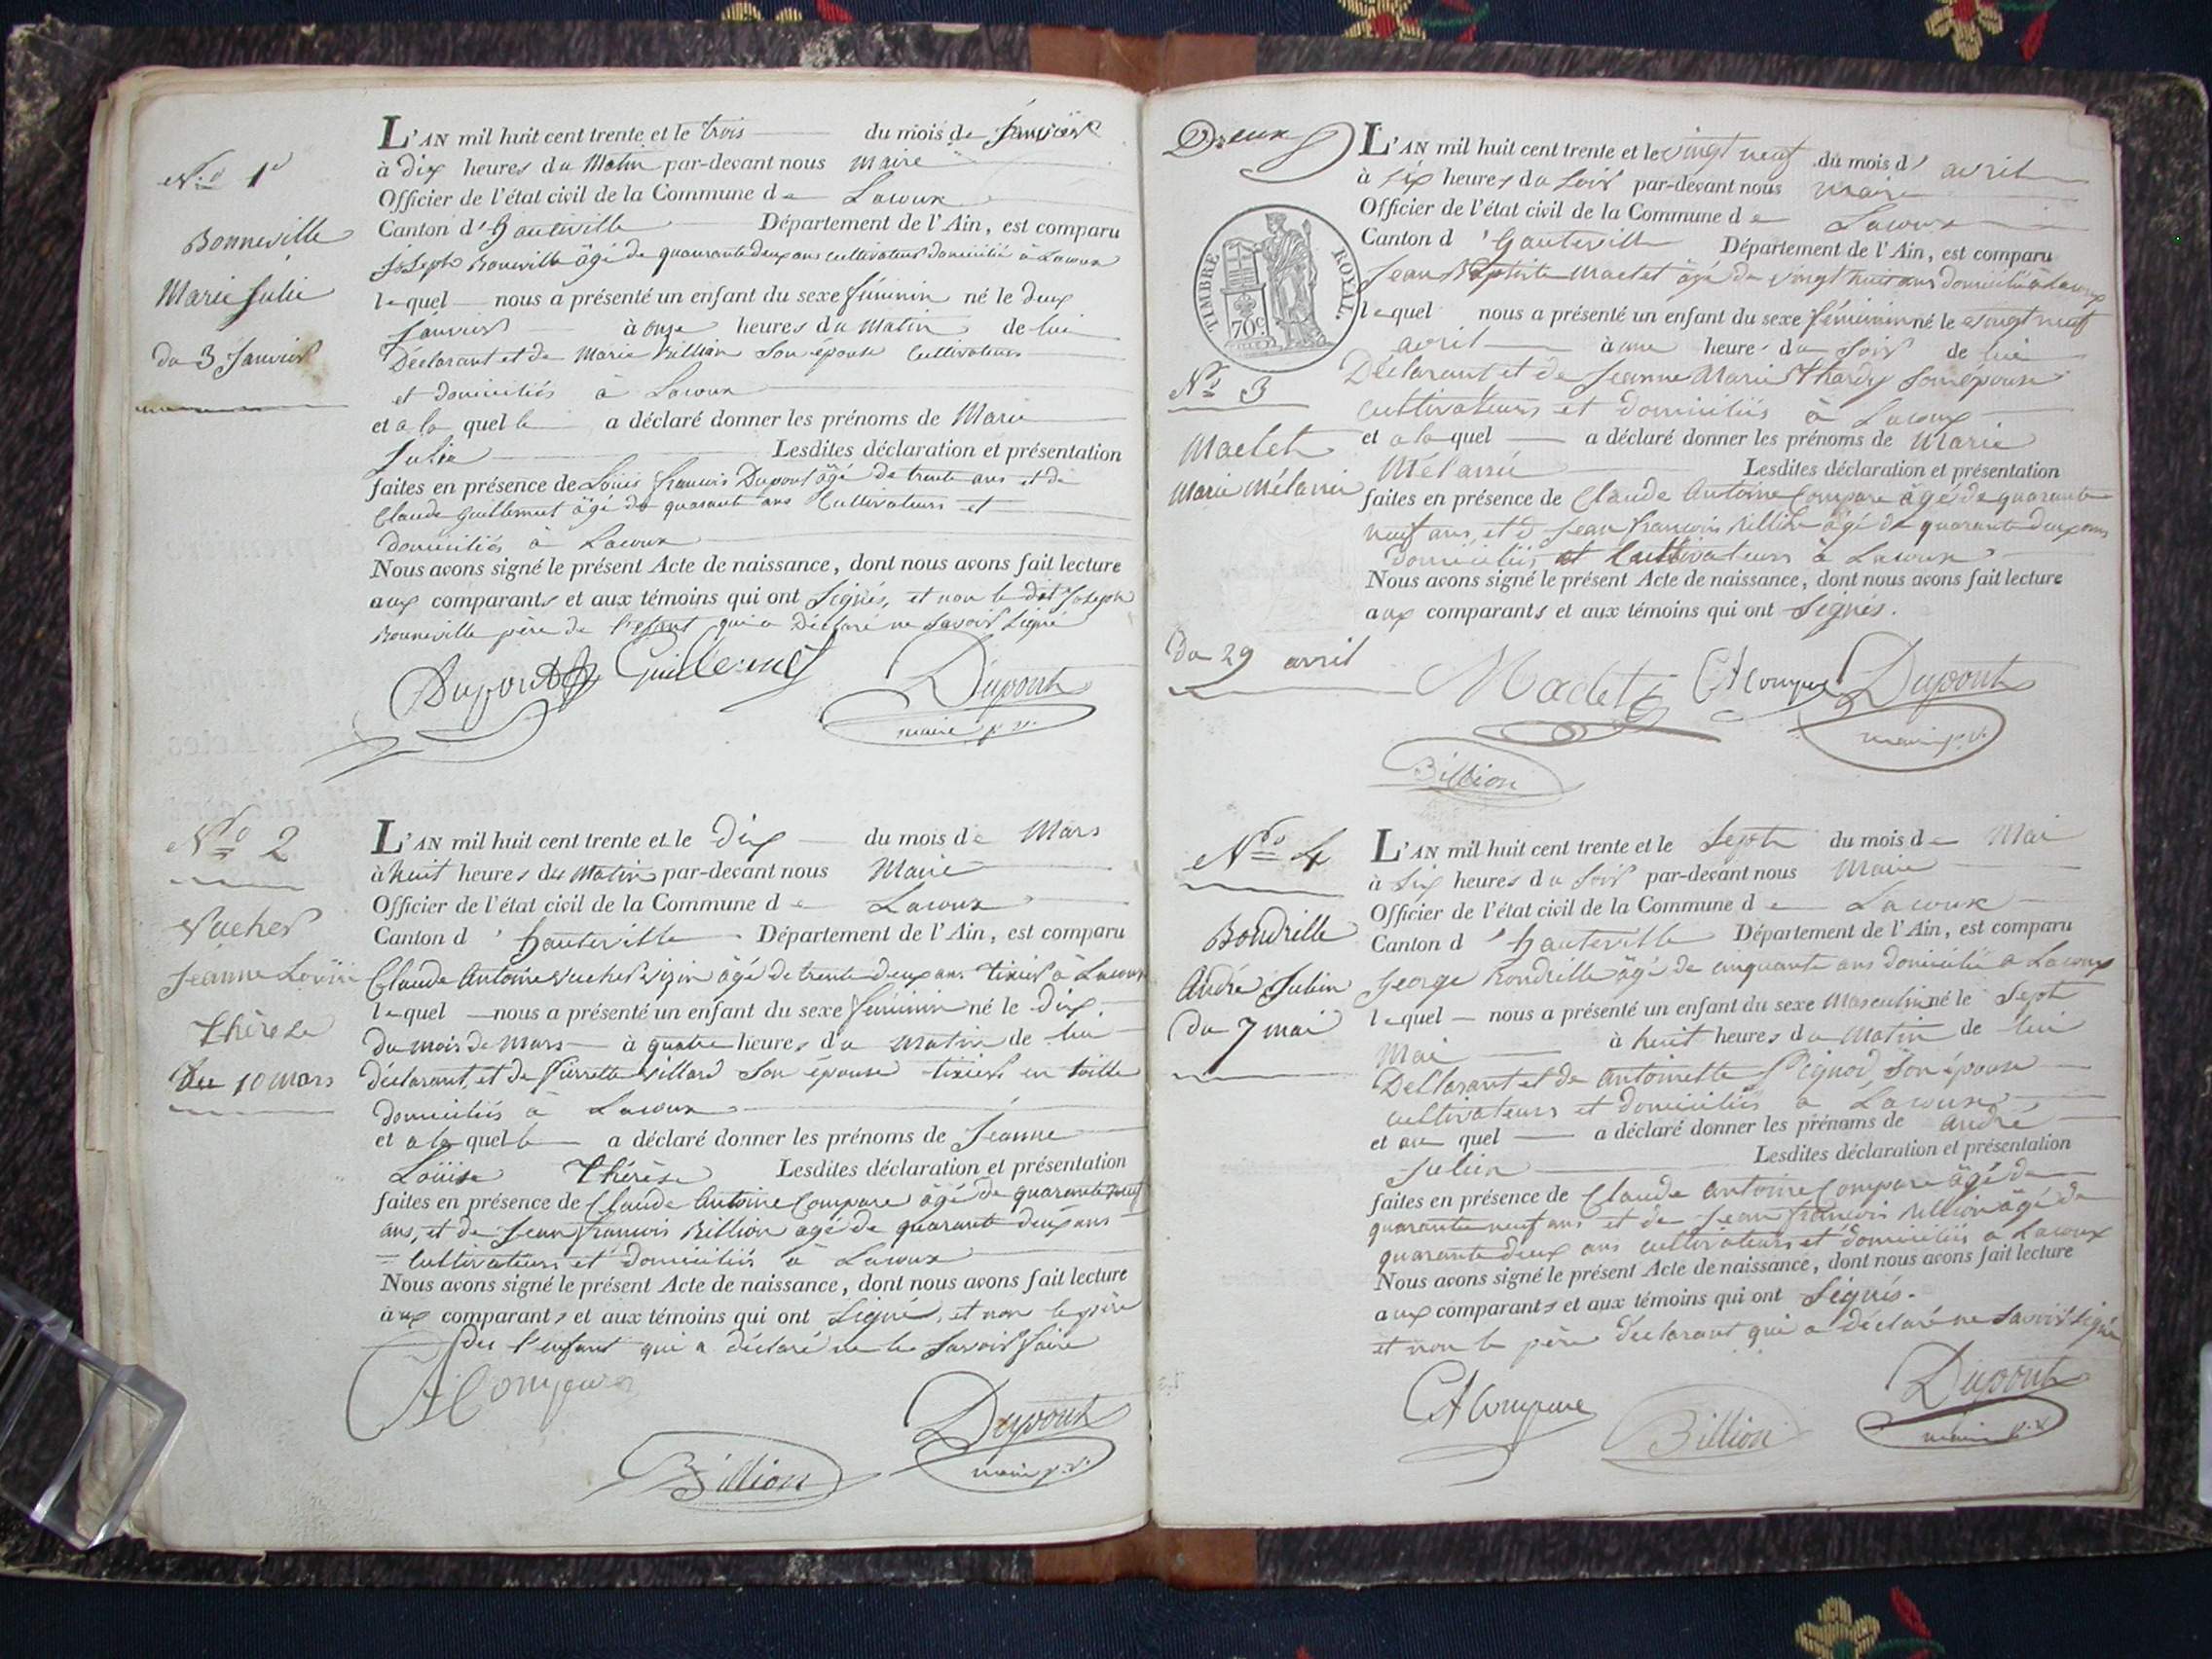 N.o 1er
Bonneville
Marie Julie
du 3 Janvier
L'AN mil huit cent trente et le trois du mois de Janvier
à dix heures du Matin par-devant nous Maire
Officier de l'état civil de la Commune de Lacoux
Canton d'hauteville Département de l'Ain, est comparu
Joseph Bonneville âgé de quarante deux ans cultivateur domicilié à Lacoux
lequel nous a présenté un enfant du sexe féminin né le deux
Janvier à onze heures du Matin de lui
Déclarant et de Marie Billion son épouse Cultivateurs
et domiciliés à Lacoux
et a la quelle a déclaré donner les prénoms de Marie
Julie Lesdites déclaration et présentation
faites en présence de Louis françois Dupont âgé de trente ans et de
Claude Guillermet âgé de quarante ans Cultivateurs et
domiciliés à Lacoux
Nous avons signé le présent Acte de naissance, dont nous avons fait lecture
aux comparants et aux témoins qui ont signés, et non le dit Joseph
Bonneville père de l'enfant qui a Déclaré ne savoir signé
Dupont Guillermet Dupont
maire
N.o 2
Vucher
Jeanne Louise
Thérèse
Du 10 mars
L'AN mil huit cent trente et le Dix du mois de Mars
à huit heures du Matin par-devant nous Maire
Officier de l'état civil de la Commune de Lacoux
Canton d'hauteville Département de l'Ain, est comparu
Claude Antoine Vucher âgé de trente deux ans tixier à Lacoux
lequel nous a présenté un enfant du sexe féminin né le dix
du mois de Mars à quatre heures du Matin de lui
déclarant et de Pierrette Villard son épouse tixiers en toille
domiciliés à Lacoux
et a la quelle a déclaré donner les prénoms de Jeanne
Louise Thérèse Lesdites déclaration et présentation
faites en présence de Claude Antoine Compare âgé de quarante neuf
ans, et de Jean françois Billion agé de quarante deux ans
Cultivateurs et domiciliés à Lacoux
Nous avons signé le présent Acte de naissance, dont nous avons fait lecture
aux comparants et aux témoins qui ont signé, et non le père
de l'enfant qui a déclaré ne le savoir faire
CACompare
Billion
Dupont
maire
Deux
TIMBRE ROYAL
70c
L'AN mil huit cent trente et le vingt neuf du mois d'avril
à six heures du soir par-devant nous maire
Officier de l'état civil de la Commune de Lacoux
Canton d'hauteville Département de l'Ain, est comparu
Jean Baptiste Maclet âgé de vingt huit ans domicilié à Lacoux
lequel nous a présenté un enfant du sexe féminin né le vingt neuf
avril à une heure du soir de lui
Déclarant et de Jeanne Marie Thardy son épouse
cultivateurs et domiciliés à Lacoux
et a la quel a déclaré donner les prénoms de Marie
Mélanie Lesdites déclaration et présentation
faites en présence de Claude Antoine Compare âgé de quarante
neuf ans, et de Jean françois Billion âgé de quarante deux ans
domiciliés et Cultivateurs à Lacoux
Nous avons signé le présent Acte de naissance, dont nous avons fait lecture
aux comparants et aux témoins qui ont signés.
N.o 3
Maclet
Marie Mélanie
du 29 avril
Maclet CACompare Dupont
maire
Billion
N.o 4
Bondrille
André Julien
du 7 mai
L'AN mil huit cent trente et le Sept du mois de Mai
à six heures du soir par-devant nous Maire
Officier de l'état civil de la Commune de Lacoux
Canton d'hauteville Département de l'Ain, est comparu
George Bondrille âgé de cinquante ans domicilié a Lacoux
lequel nous a présenté un enfant du sexe Masculin né le Sept
Mai à huit heures du Matin de lui
Déclarant et de Antoinette Pignod, son épouse
cultivateurs et domiciliés a Lacoux
et au quel a déclaré donner les prénoms de André
Julien Lesdites déclaration et présentation
faites en présence de Claude Antoine Compare âgé de
quarante neuf ans et de Jean françois Billion âgé de
quarante deux ans cultivateurs et domiciliés a Lacoux
Nous avons signé le présent Acte de naissance, dont nous avons fait lecture
aux comparants et aux témoins qui ont signés.
et non le père déclarant qui a déclaré ne savoir signé
CACompare
Billion
Dupont
maire